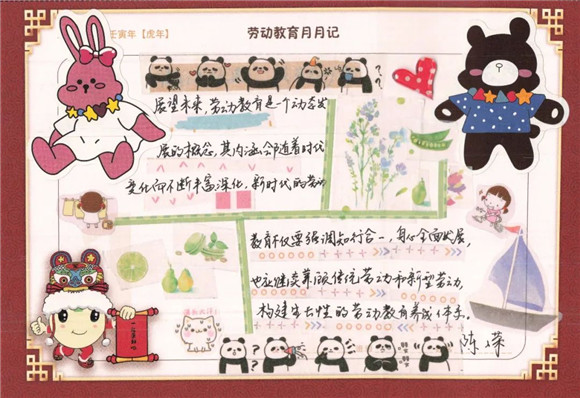 壬寅年【虎年】
劳动教育月月记
展望未来，劳动教育是一个动态发
展的概念，其内涵会随着时代
变化而不断丰富深化，新时代的劳动
教育不仅要强调知行合一，身心全面发展，
也应继续兼顾传统劳动和新型劳动，
构建生长性的劳动教育养成体系。
陈嵘